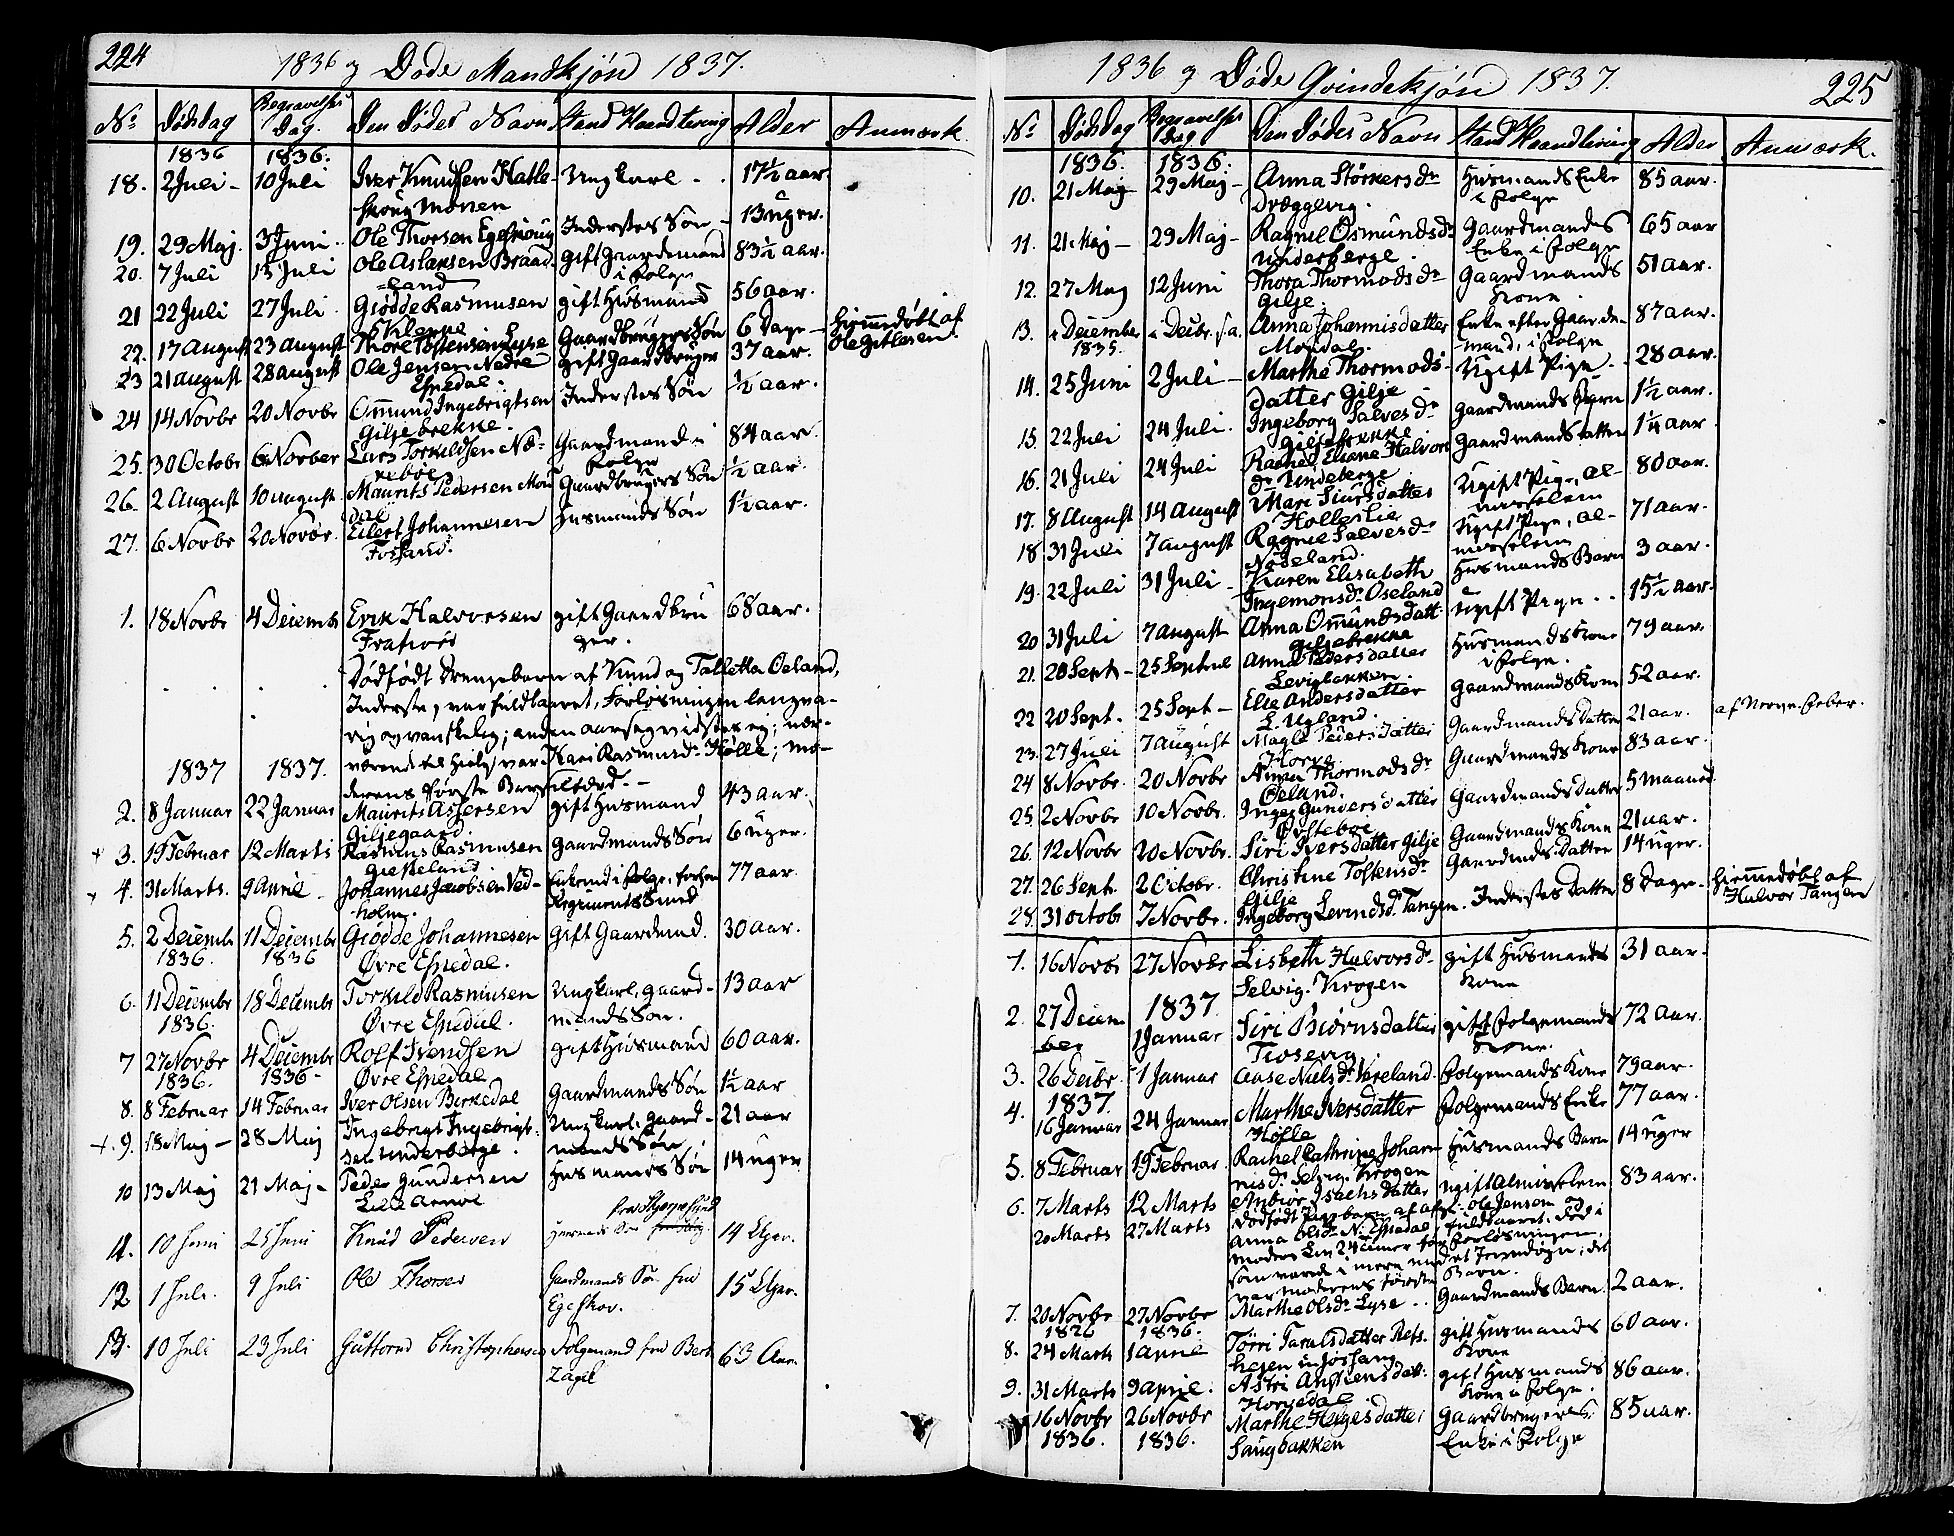 224
1836 og Döde Mandkjön 1837.
No Dödsdag Begravelses Dag. Den Dödes Navn Stand Haandtering Alder Anmærk.
1836 1836.
18. 2 Juli - 10 Juli Iver Knudsen Hatle- Ungkarl - . 17½ aar
skoug Monen
19. 29 Maj. 3 Juni - Ole Thorsen Egeskoug Inderstes Sön - 13 uger.
20. 7 Juli 15 Juli Ole Aslaksen Braad- gift Gaardmand 83½ aar.
=land i Folge
21 22 Juli 27 Juli. Giödde Rasmusen gift Husmand 56 aar.
22. 17 August 23 August Thore Tostensen Lyse Gaardbrugers Sön 6 Dage - Hiemmedöbt af
23 21 August 28 August Ole Jensen Nedre gift Gaardbruger 37 aar.
Espedal.
24 14 Novbr 20 Novbr Ommund Ingebrigtsen Inderstes Sön ½ aar.
Giljebrekke.
25. 30 Octobr 6 Novber Lars Torkildsen Næ- Gaardmand i 84 aar.
seböe Folge
26. 2 August 10 August Maurits Pedersen Mou Gaardbrugers Sön ½ aar.
dal
27. 6 Novbr 20 Novbr. Eilert Johannesen Husmands Sön 1½ aar.
Fossand.
1. 18 Novbr 4 Decembr Erik Halvorsen gift Gaardbru 68 aar.
Frafiord ger.
Dödfödt Drengebarn af Knud og Tolletta Oeland,
Inderste, var fuldbaaret, Forlösningen langva-
rig og vanskelig; anden aarsag vidstes ej; nær-
værende til Hielp var Kari Rasmusdr. Hölle; mo-
derens förste Barselfærd. -
1837 1837.
2. 8 Januar 22 Januar Maurits Assersen gift Husmand 43 aar.
Giljegaard.
+ 3. 19 Februar 12 Marts Rasmus Rasmusen Gaardmands Sön 6 uger.
Gieseland
4. 31 Marts. 9 April - Johannes Jacobsen Ved- Enkemd i Folge, forhen 77 aar
holm. Regiments Smed
5. 2 Decembr 11 Decembr Giödde Johannesen Gift Gaardmd. 30 aar.
1836. 1836 Øvre Espedal.
6. 11 Decembr 18 Decembr Torkild Rasmusen Ungkarl, gaard- 13 aar
1836. Øvre Espedal. mands Sön.
7 27 Novbr 4 Decembr Rolf Svendsen gift Husmand 60 aar.
1836. 1836 - Øvre Espedal
8. 8 Februar 14 Februar Iver Olsen Birkedal Gaardmands Sön 1½ aar
+ 9. 18 Maj - 28 Maj Ingebrigt Ingebrigt- Ungkarl, gaard- 21 aar
sen Underberge. mands Sön
10 13 Maj 21 Maj - Peder Gundersen Husmands Sön 14 uger
Lille
11. 10 Juni 25 Juni Knud Pedersen Huusmds Sön 14 Uger.
12 1 Juli. 9 Juli Ole Thorsen Gaardmands Sön fra 15 Uger.
Egeskov.
13. 10 Juli 23 Juli Guttorm Christophersen Folgemand fra 63 Aar.
225
1836 og Döde Qvindekjön 1837.
No. Dödsdag Begravelses Dag Den Dödes Navn Stand Haandtering Alder Anmærk.
1836. 1836.
10. 21 Maj 29 Maj - Anna Störkersdr Husmands Enke 85 aar.
Dræggevig. i Folge
11. 21 Maj - 29 Maj - Ragnil Osmundsdr Gaardmands 65 aar
Underberge. Enke i Folge
12. 27 Maj 12 Juni Thora Thormodsdr Gaardmands 51 aar.
Gilje. Kone
13. December Decbr. Anna Johannisdatter Enke efter Gaard- 87 aar.
1835. mand, i Folge
14. 25 Juni 2 Juli - Marthe Thormods- Ugift Pige. - 28 aar.
datter Gilje
15. 22 Juli 24 Juli. Ingeborg Salvesdr Gaardmands Barn 1½ aar.
Giljebrekke
16. 21 Juli 24 Juli Rachel Eliane Halvors Gaardmands datter 1¼ aar.
dr Underberge
17. 8 August 14 August Mari Siursdatter Ugift Pige, Al- 80 aar.
Holleslie
18 31 Juli 7 August Ragnil Salvesdr Ugift Pige, al- 71 aar.
19. 22 Juli 31 Juli - Karen Elisabeth Husmands Barn 3 aar.
Ingemonsdr. Oseland
20 31 Juli 7 August Anna Ommundsdatt. ugift Pige - - 15½ aar.
Giljebrekke
21. 20 Sept - 25 Septembr Anna Pedersdatter Husmands Kone 79 aar.
Levigbakken i Folge.
22 20 Sept. 25 Sept - Elie Andersdatter Gaardmands Kone 52 aar.
23. 27 Juli 7 August Magla Pedersdatter Gaardmands Datter 21 aar. af Nerve-Feber.
24 8 Novbr. 20 Novbr Anna Thormodsdr Gaardmands Kone 83 aar.
Oeland.
25. 2 Novbr 10 Novbr. Inger Gundersdatter Gaardmands Datter 5 maaned
26. 12 Novbr 20 Novbr. Siri Iversdatter Gilje Gaardmands Kone 21 aar.
27. 26 Sept. 2 Octobr. Christine Tostensdr Gaardmds. Datter 14 uger.
Gilje
28. 31 Octobr 7 Novbr. Ingeborg Levindsdr. Tangen. Inderstes Datter 8 Dage - Hiemmedöbt af
Halvor Tangen
1. 16 Novbr 27 Novbr Lisbeth Halvorsdr gift Husmands 31 aar.
Selvig. Krogen Kone
2. 27 Decem 1837
ber 1 Januar Siri Biörnsdatter gift Folgemands 72 aar.
Kone.
3. 26 Decbr. 1 Januar Aase Nielsdr. Folgemands Kone 79 aar.
4. 1837.
16 Januar 24 Januar Marthe Iversdatter Folgemands Enke 77 aar.
Hölle
5. 8 Februar 19 Februar Rachel Cathrine Johan Husmands Barn 14 uger
nisdr. Selvig. Krogen
6. 7 Marts 12 Marts Anbiör Isachsdatter ugift Almisselem 83 aar.
20 Marts 27 Marts Dödfödt Pigebarn af Ole Jensen og
Anna Olsdr. N. Espedal, fuldbaaret. död i
Moders Liv 24 Timer för Forlösningen,
som varede i mere end et Jevndögn; det
var Moderens förste Barn.
7. 20 Novbr 27 Novbr Marthe Olsdr Lyse - . Gaardmands Barn 2 aar.
1836 1836.
8. 24 Marts 1 April Törri Taralsdatter gift Husmands 60 aar.
Kone
9. 31 Marts 9 April. Astri gift Husmands 86 aar.
Kone i Folge.
16 Novbr 26 Novbr Marthe Helgesdatter Gaardbrugeres 85 aar.
1836. 1836. Haugbakken Enke i Folge